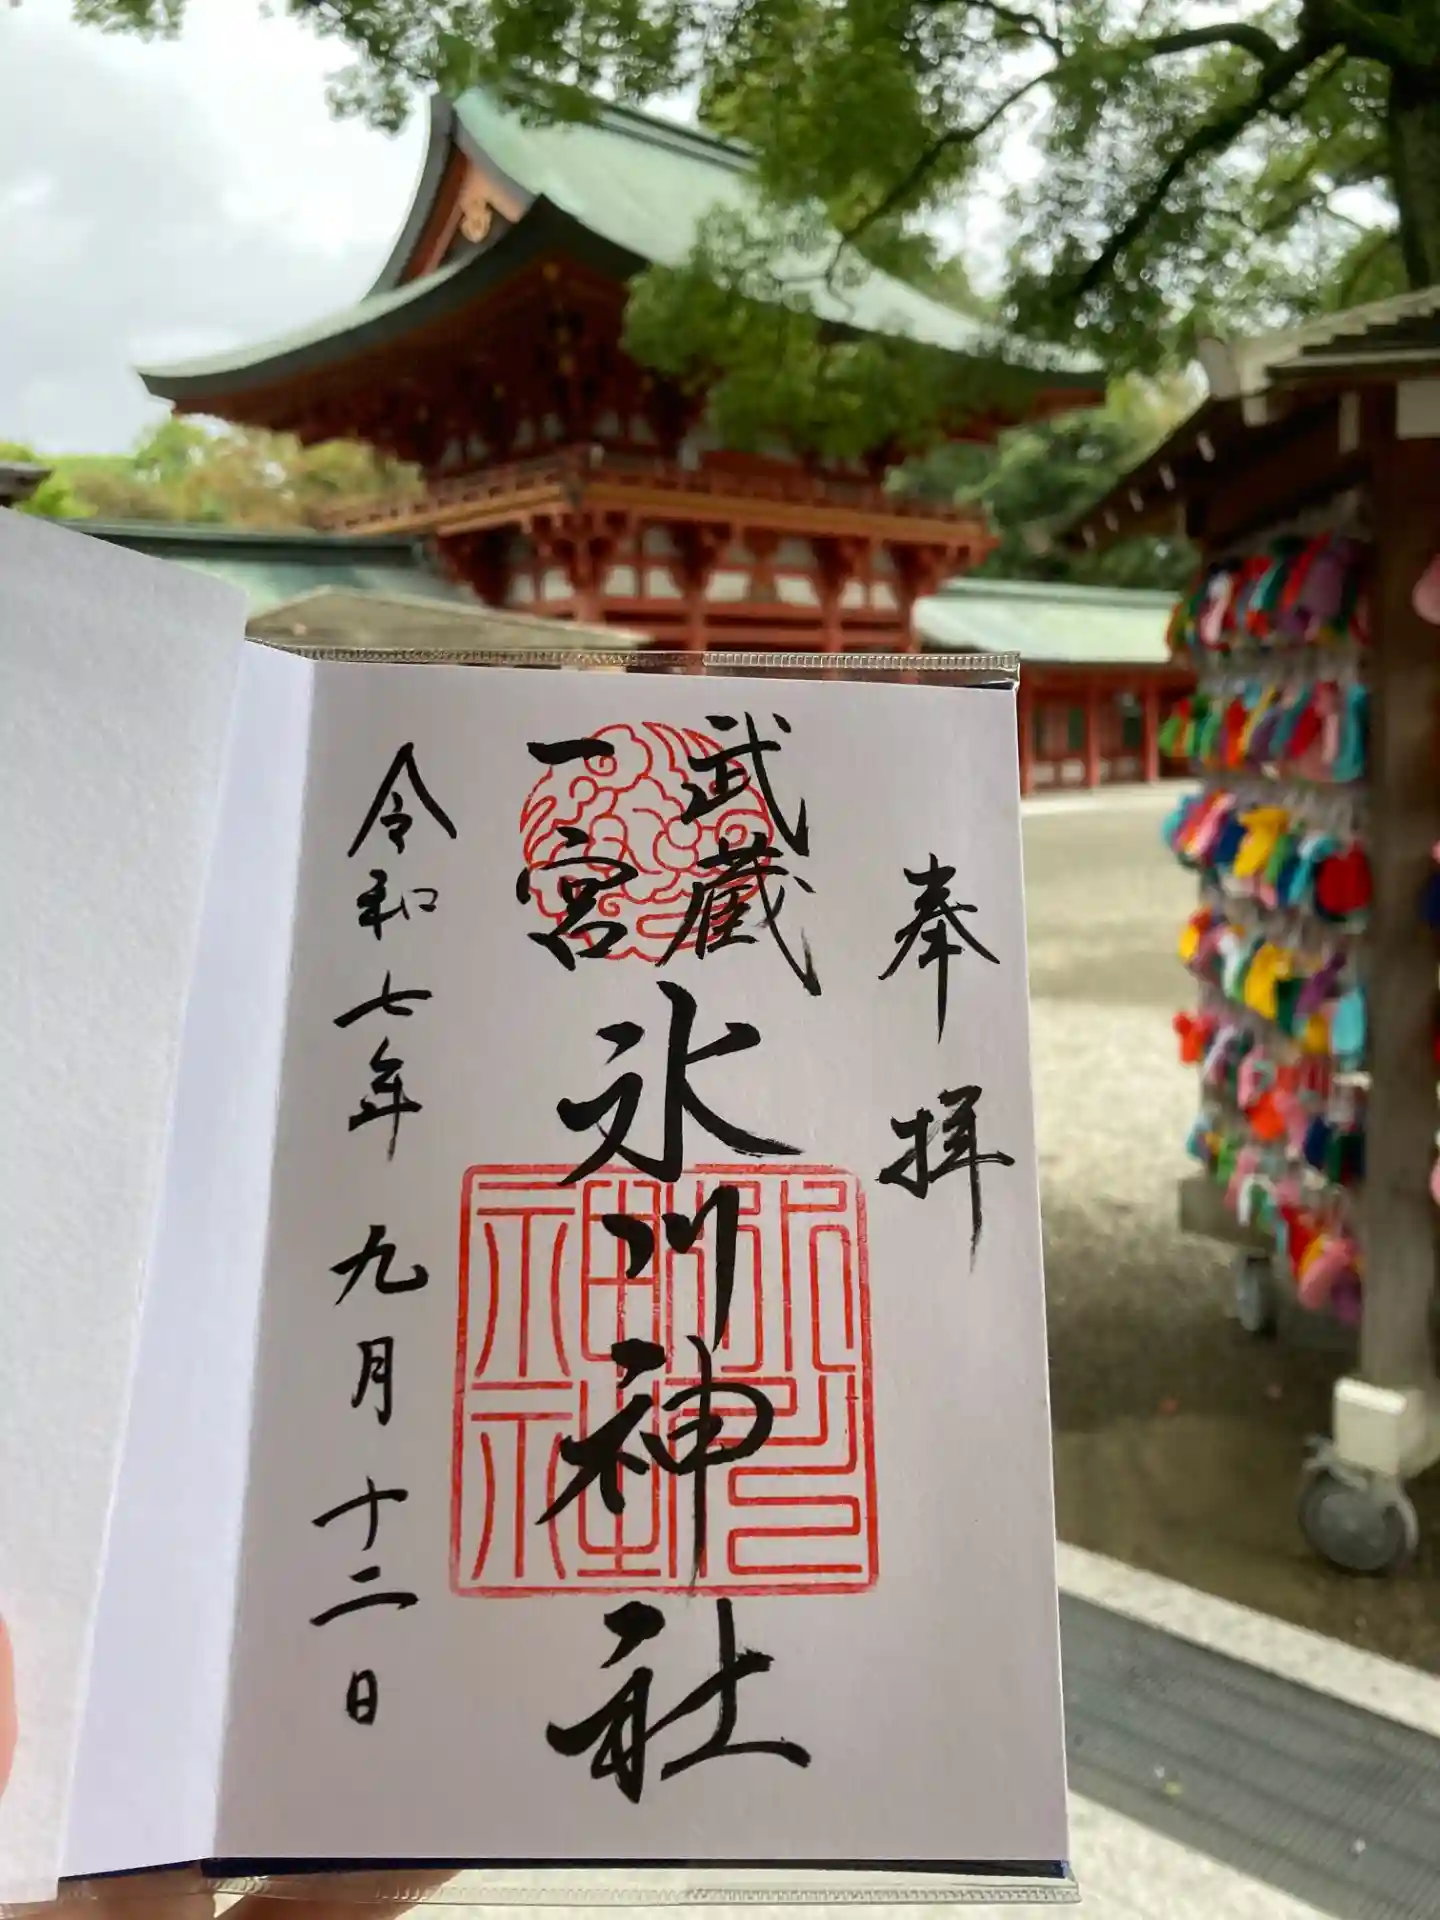 奉拝
武蔵
一宮
氷川神社
令和七年九月十二日
氷川
神社